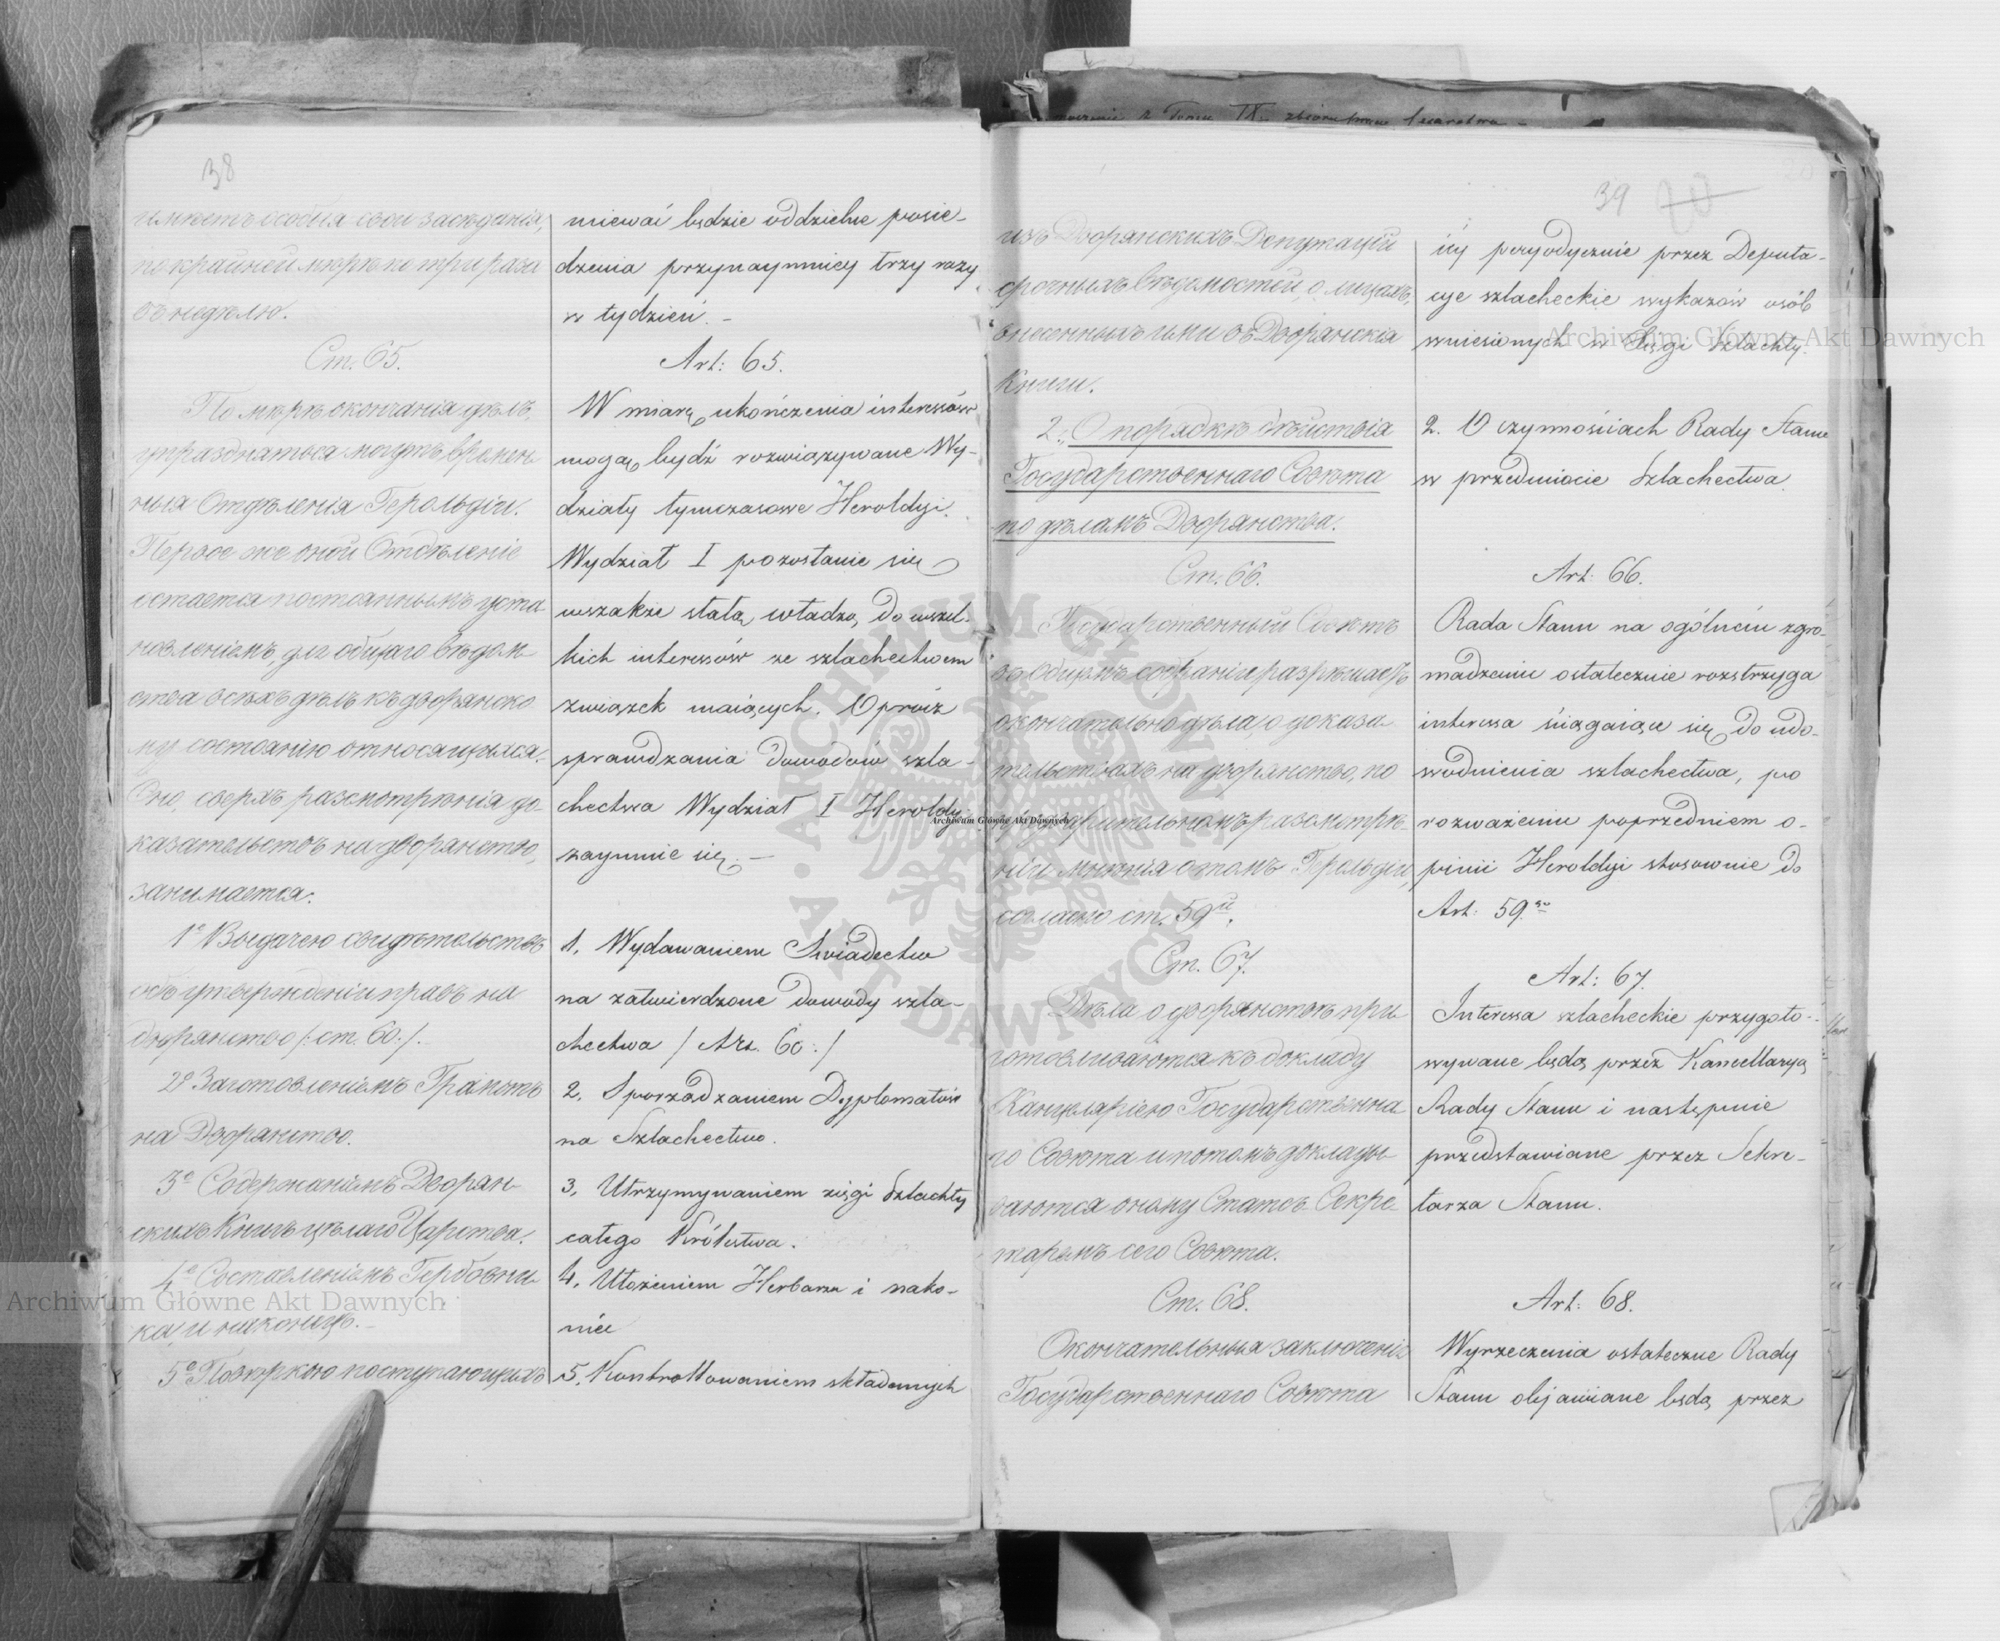 38
имѣетъ особыя свои засѣданія,
по крайней мѣрѣ по три раза
въ недѣлю.
Ст. 65.
По мѣрѣ окончанія дѣлъ,
упраздняться могутъ времен-
ныя Отдѣленія Герольдіи.
Первое же оной Отдѣленіе
остается постояннымъ уста
новленіемъ, для общаго вѣдом
ства всѣхъ дѣлъ къ дворянско
му состоянію относящихся.
Оно, сверхъ разсмотрѣнія до-
казательствъ на дворянство,
занимается:
1е Выдачею свидѣтельствъ
объ утвержденіи правъ на
дворянство /: ст. 60:/.
2е Заготовленіемъ Грамотъ
на Дворянство.
3е Содержаніемъ Дворян-
скихъ Книгъ цѣлаго Царства.
4е Составленіемъ Гербовни-
ка, и наконецъ. -
5е Повѣркою поступающихъ
miewać będzie oddzielne posie-
dzenia przynaymniey trzy razy
w tydzień. -
Art: 65.
W miarę ukończenia interessów
mogą bydź rozwiązywane Wy-
działy tymczasowe Heroldyi.
Wydział I pozostanie się
wszakże stałą władzą, do wszel-
kich interessów ze szlachectwem
związek maiących. Oprócz
sprawdzania dowodów szla-
chectwa Wydział I Heroldyi
zaymie się. -
1. Wydawaniem Swiadectw
na zatwierdzone dowody szla-
chectwa /Art. 60:/
2. Sporządzaniem Dyplomatów
na Szlachectwo.
3. Utrzymywaniem xięgi Szlachty
całego Królestwa.
4. Ułożeniem Herbarza i nako-
niec
5. Kontrollowaniem składanych
39
изъ Дворянскихъ Депутацій
срочныхъ вѣдомостей, о лицахъ,
внесенныхъ ими въ Дворянскія
Книги.
2. О порядкѣ дѣйствія
Государственнаго Совѣта
по дѣламъ Дворянства.
Ст. 66.
Государственный Совѣтъ
въ Общемъ собраніи разрѣшаетъ
окончательно дѣла, о доказа-
тельствахъ на дворянство, по
предварительномъ разсмотрѣ-
ніи мнѣнія о томъ Герольдіи,
согласно ст. 59й.
Ст. 67.
Дѣла о дворянствѣ при-
готовливаются къ докладу
Канцеляріею Государственна
го Совѣта и потомъ доклады-
ваются оному Статсъ Секре-
таремъ сего Совѣта.
Ст. 68.
Окончательныя заключенія
Государственнаго Совѣта
iéy peryodycznie przez Deputa-
cye szlacheckie wykazów osób
wniesionych w Xięgi Szlachty.
2. O czynnościach Rady Stanu
w przedmiocie Szlachectwa.
Art: 66.
Rada Stanu na ogólném zgro-
madzeniu ostatecznie rozstrzyga
interessa ściągaiące się do udo-
wodnienia szlachectwa, po
rozważeniu poprzedniem o-
pinii Heroldyi stosownie do
Art: 59go
Art: 67.
Interessa szlacheckie przygoto-
wywane będą przez Kancellaryą
Rady Stanu i następnie
przedstawiane przez Sekre-
tarza Stanu.
Art: 68.
Wyrzeczenia ostateczne Rady
Stanu obiawiane będą przez
Archiwum Główne Akt Dawnych
Archiwum Główne Akt Dawnych
Archiwum Główne Akt Dawnych
ARCHIWUM GŁÓWNE · AKT DAWNYCH ·